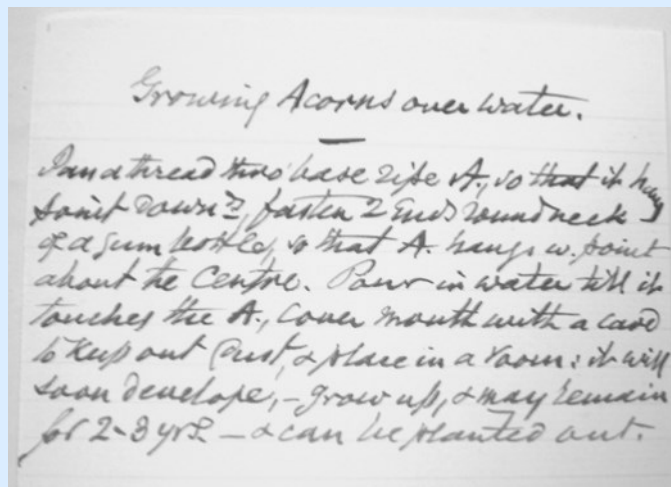 Growing Acorns over water.
Pan a thread thro' base ripe A., so that it hang
point downds, fasten 2 Ends round neck
of a gum bottle, so that A. hangs w. point
about the Centre. Pour in water till it
touches the A., cover mouth with a card
to keep out Dust, & place in a room: it will
soon develope, - grow up, & may remain
for 2-3 yrs. - & can be planted out.